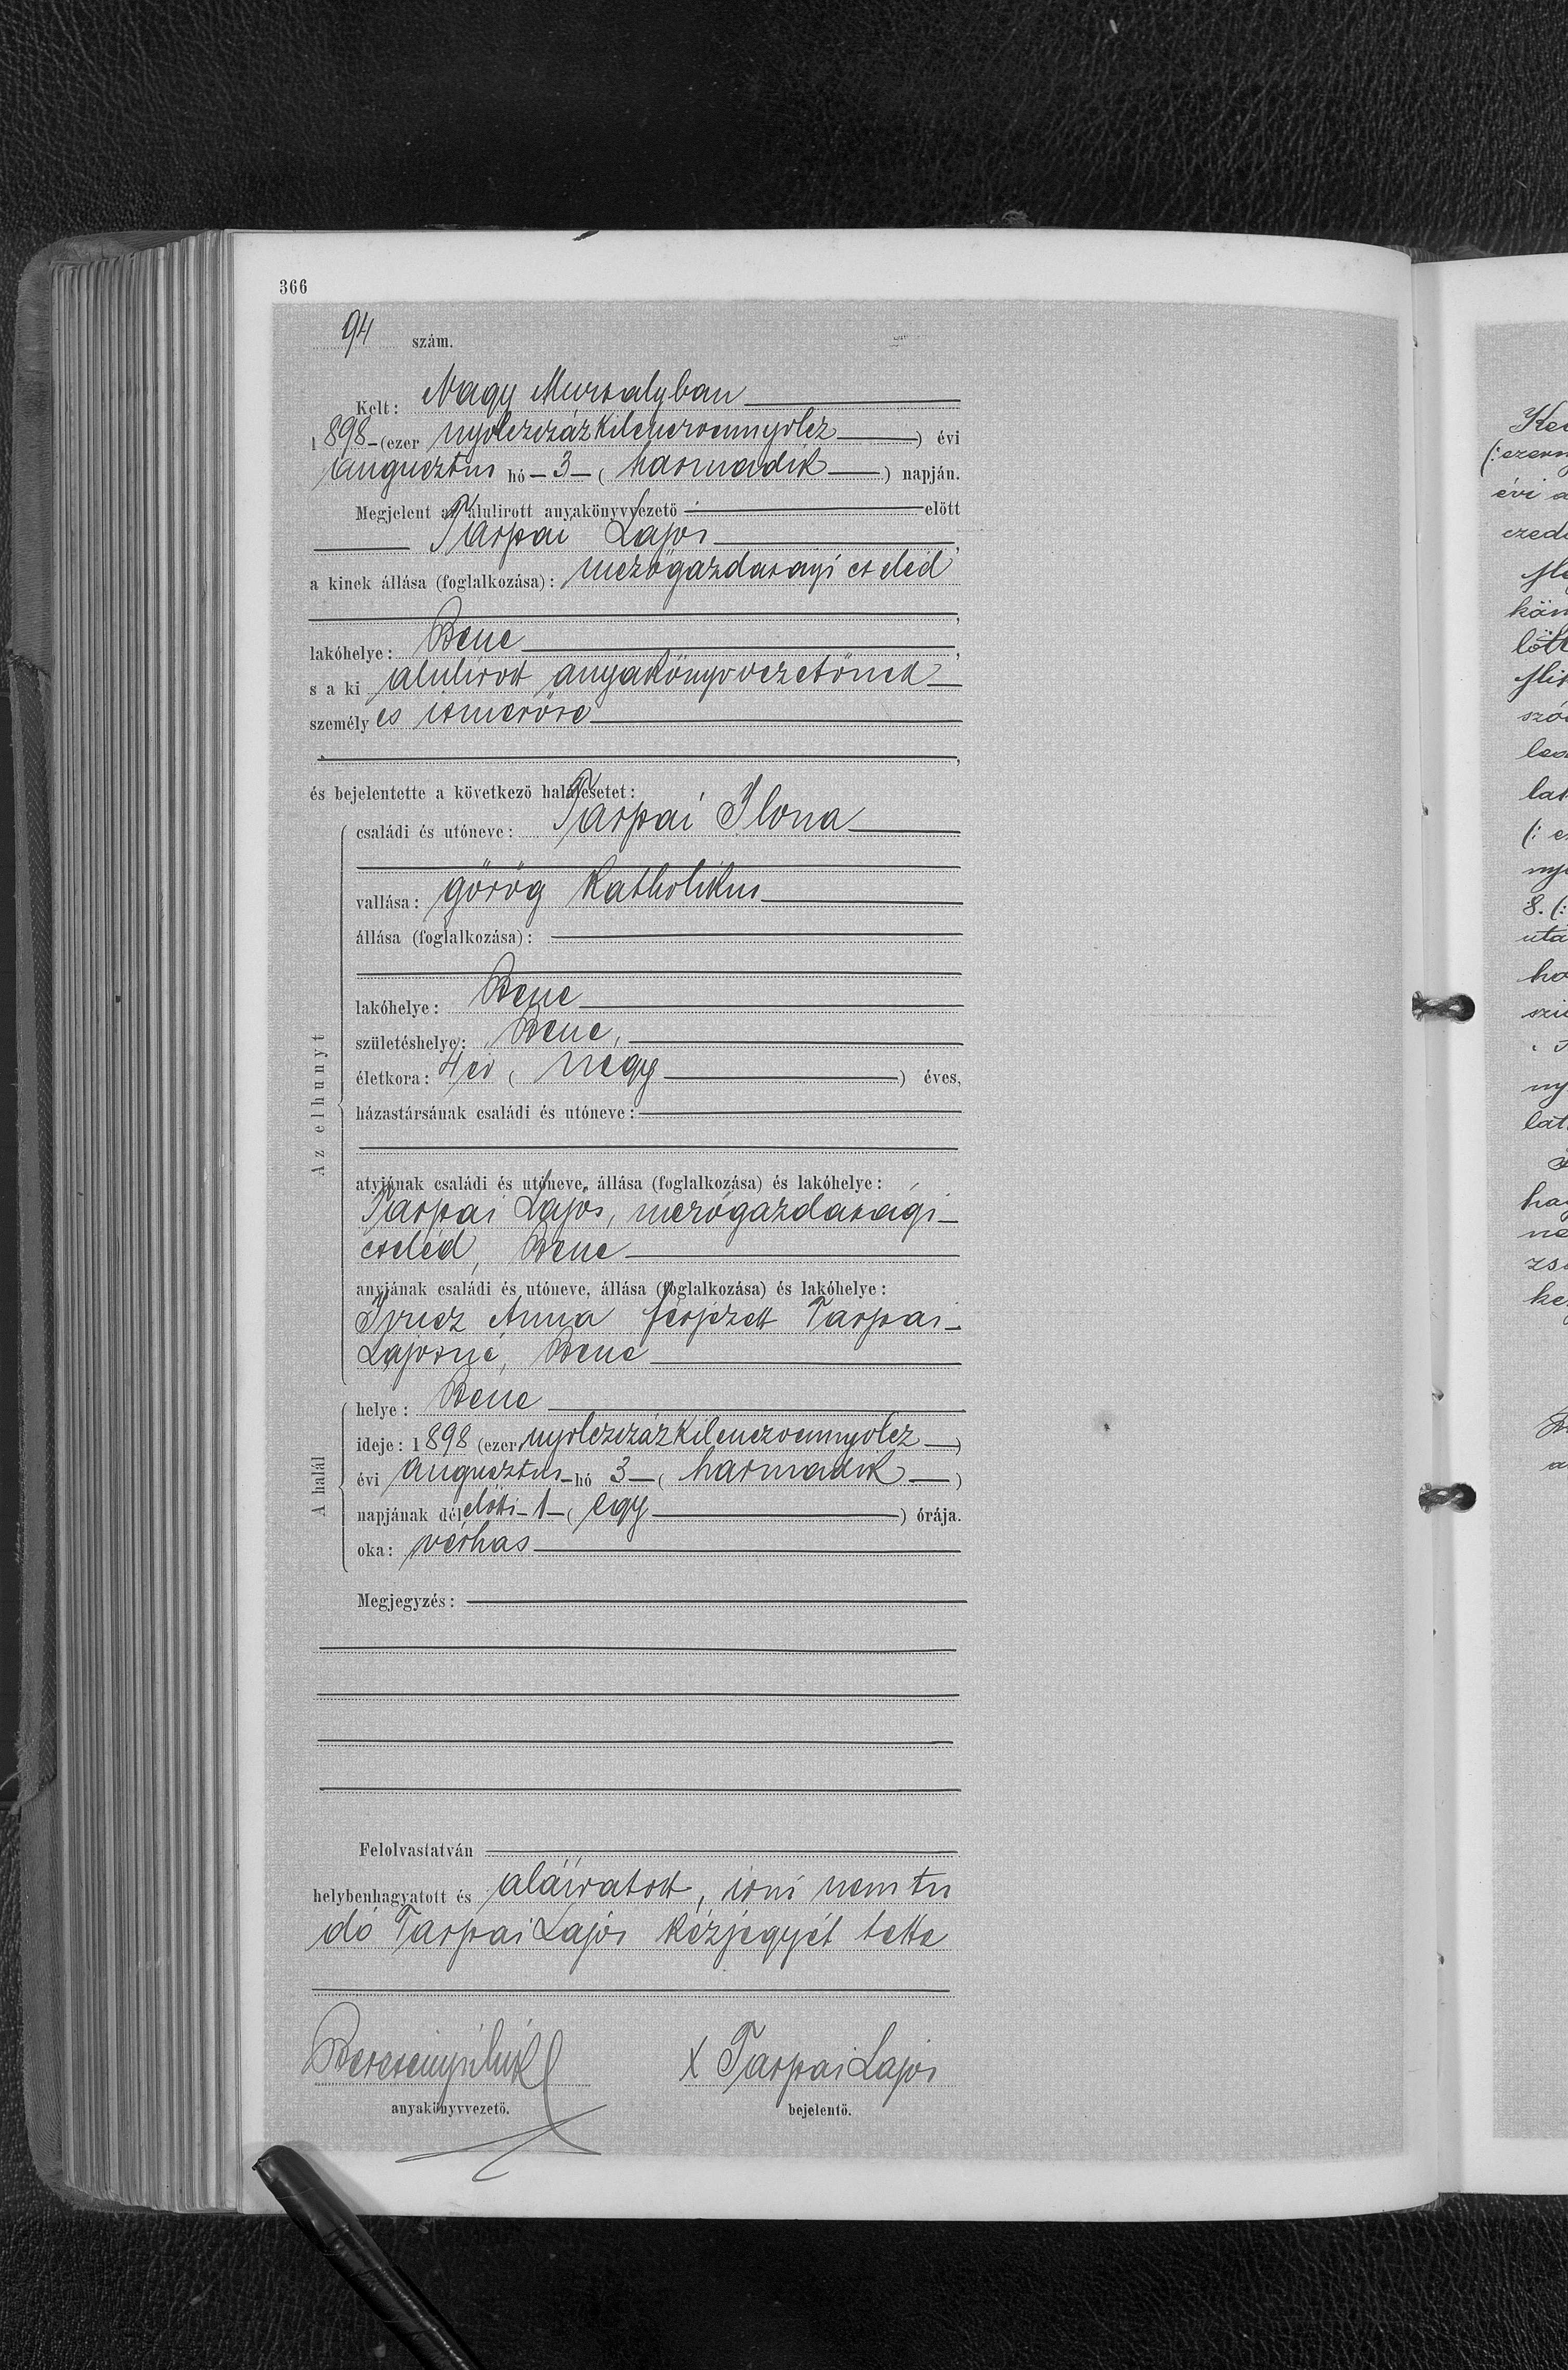 366
94 szám.
Kelt: Nagy Muzsalyban
1898 (ezer nyolczszázkilenczvennyolcz) évi
augusztus hó 3 (harmadik) napján.
Megjelent az alulirott anyakönyvvezető előtt
Tarpai Lajos,
a kinek állása (foglalkozása): mezőgazdasági cseléd
lakóhelye: Bene,
s a ki alulirott anyakönyvvezetőnek
személyes ismerőse
és bejelentette a következő halálesetet:
Az elhunyt
családi és utóneve: Tarpai Ilona
vallása: görög katholikus
állása (foglalkozása):
lakóhelye: Bene
születéshelye: Bene,
életkora: 4 év (négy) éves,
házastársának családi és utóneve:
atyjának családi és utóneve, állása (foglalkozása) és lakóhelye:
Tarpai Lajos, mezőgazdasági
cseléd, Bene
anyjának családi és utóneve, állása (foglalkozása) és lakóhelye:
Anna férjezett Tarpai
Lajosné, Bene
A halál
helye: Bene
ideje: 1898 (ezer nyolczszázkilenczvennyolcz)
évi augusztus hó 3 (harmadik)
napjának délelőtti 1 (egy) órája.
oka: vérhas
Megjegyzés:
Felolvastatván
helybenhagyatott és aláiratott, irni nem tu
dó Tarpai Lajos kézjegyét tette
X Tarpai Lajos
anyakönyvvezető. bejelentő.